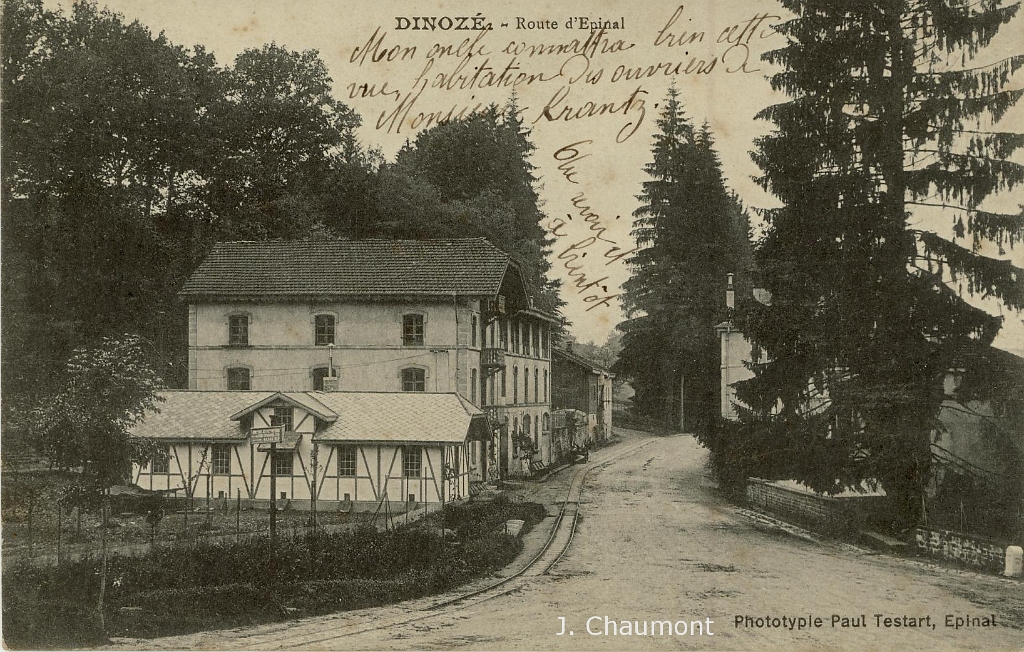 DINOZÉ. - Route d'Epinal
Mon oncle connaîtra bien cette
vue, habitation des ouvriers à
Monsieur Krantz.
à bientôt
J. Chaumont
Phototypie Paul Testart, Epinal